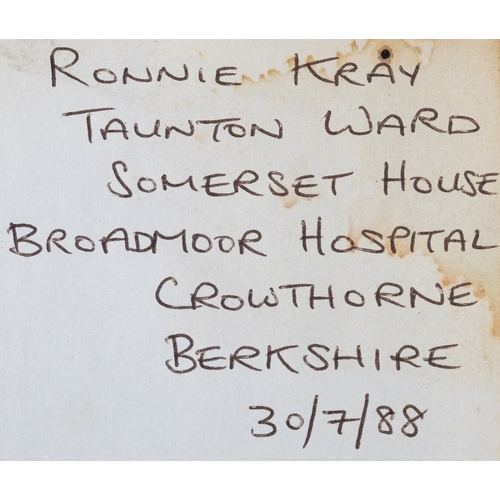 RONNIE KRAY
TAUNTON WARD
SOMERSET HOUSE
BROADMOOR HOSPITAL
CROWTHORNE
BERKSHIRE
30/7/88